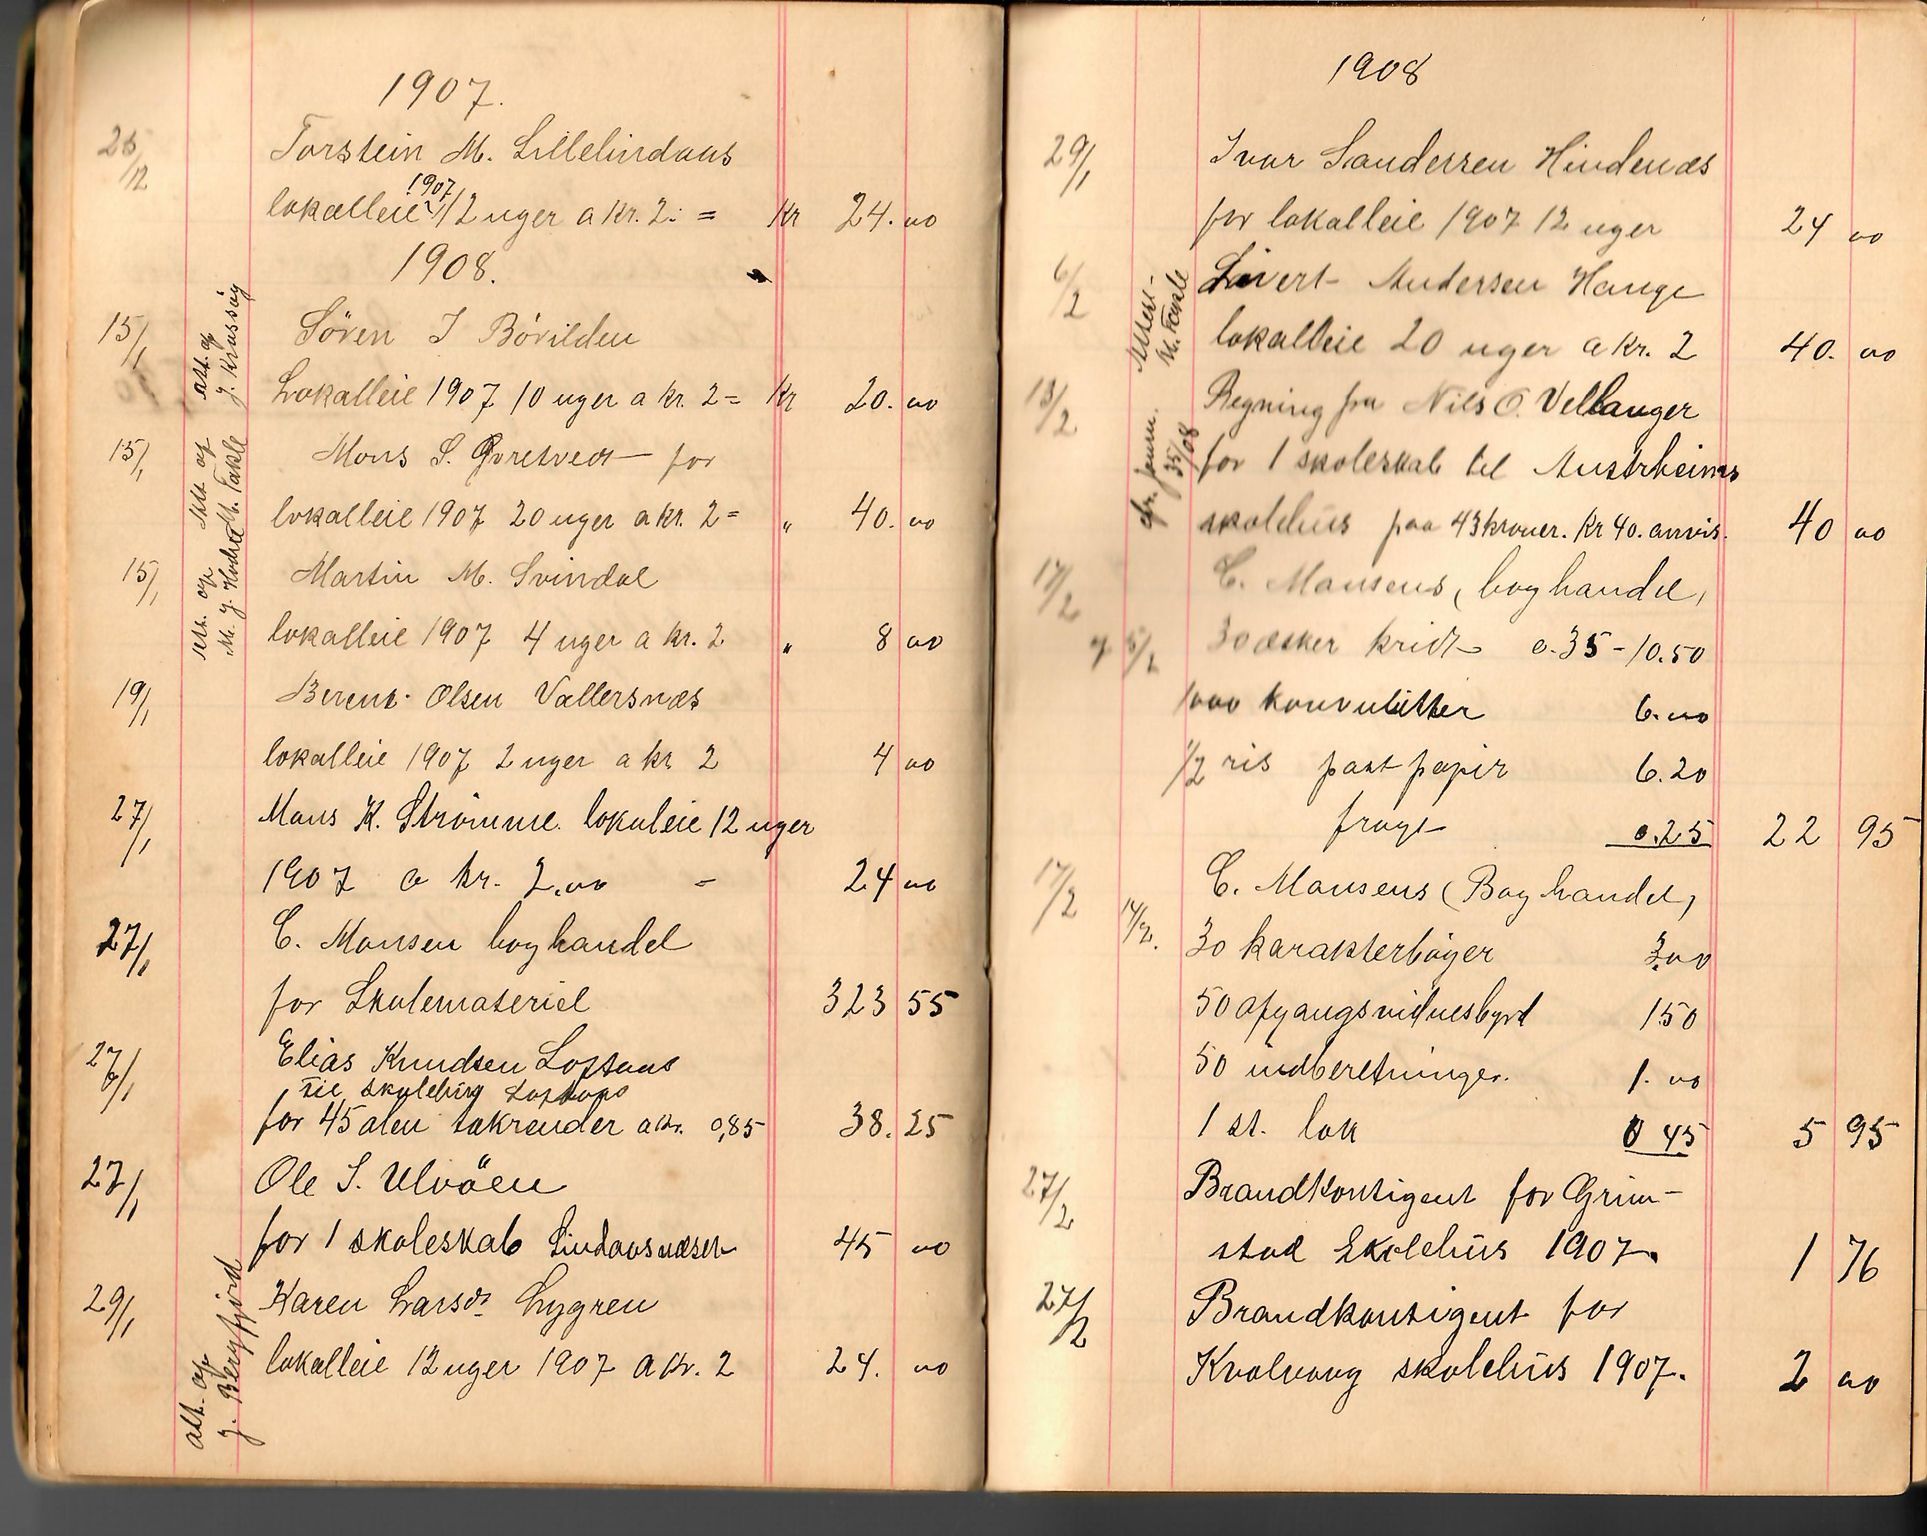 1907.
26/12 Torstein M. Lillelindaas
lokalleie 1907 12 uger a kr. 2. = Kr 24. 00
1908.
15/1 Sören I Börilden
att. af J. Krossöy
Lokalleie 1907 10 uger a kr. 2 = Kr 20. 00
15/1 Mons S. Qvretvedt for
Att af M. Fakle
lokalleie 1907 20 uger a kr. 2 = " 40. 00
15/1 Martin M. Svindal
att. af M. J.
lokalleie 1907 4 uger a kr. 2 " 8 00
19/1 Berent Olsen Vallersnæs
lokalleie 1907 2 uger a kr 2 4 00
27/1 Mons K. Strömme lokaleie 12 uger
1907 a kr. 2.00 - 24 00
27/1 C. Monsen boghandel
for Skolemateriel 323 55
27/1 Elias Knudsen Loftaas
til skolehus Loftaas
for 45 alen takrender a kr. 0,85 38. 25
27/1 Ole S. Ulvöen
for 1 skoleskab Lindaasnæset 45 00
29/1 Karen Larsdr Lygren
att. af J. Bergfjord
lokalleie 12 uger 1907 a kr. 2 24. 00
1908
29/1 Ivar Sandersen Hindenæs
for lokalleie 1907 12 uger 24 00
6/2 Sivert Andersen Hauge
Attest- M. Fakle
lokalleie 20 uger a kr. 2 40. 00
13/2 Regning fra Nils O. Vellanger
cfr. journ. 35/08
for 1 skoleskab til Austrheims
skolehus paa 43 kroner. Kr 40. anvis. 40 00
17/2 C. Monsens (boghandel)
af 5/2 30 æsker kridt a. 35 - 10.50
1000 konvulutter 6.00
1/2 ris postpapir 6.20
fragt 0.25 22 95
17/2 C. Monsens (Boghandel)
14/2. 30 karakterböger 3.00
50 afgangsvidnesbyrd 1 50
50 indberetninger. 1. 00
1 st. lak 0 45 5 95
27/2 Brandkontigent for Grim-
stad Skolehus 1907. 1 76
27/2 Brandkontigent for
Kvalvaag skolehus 1907. 2 00